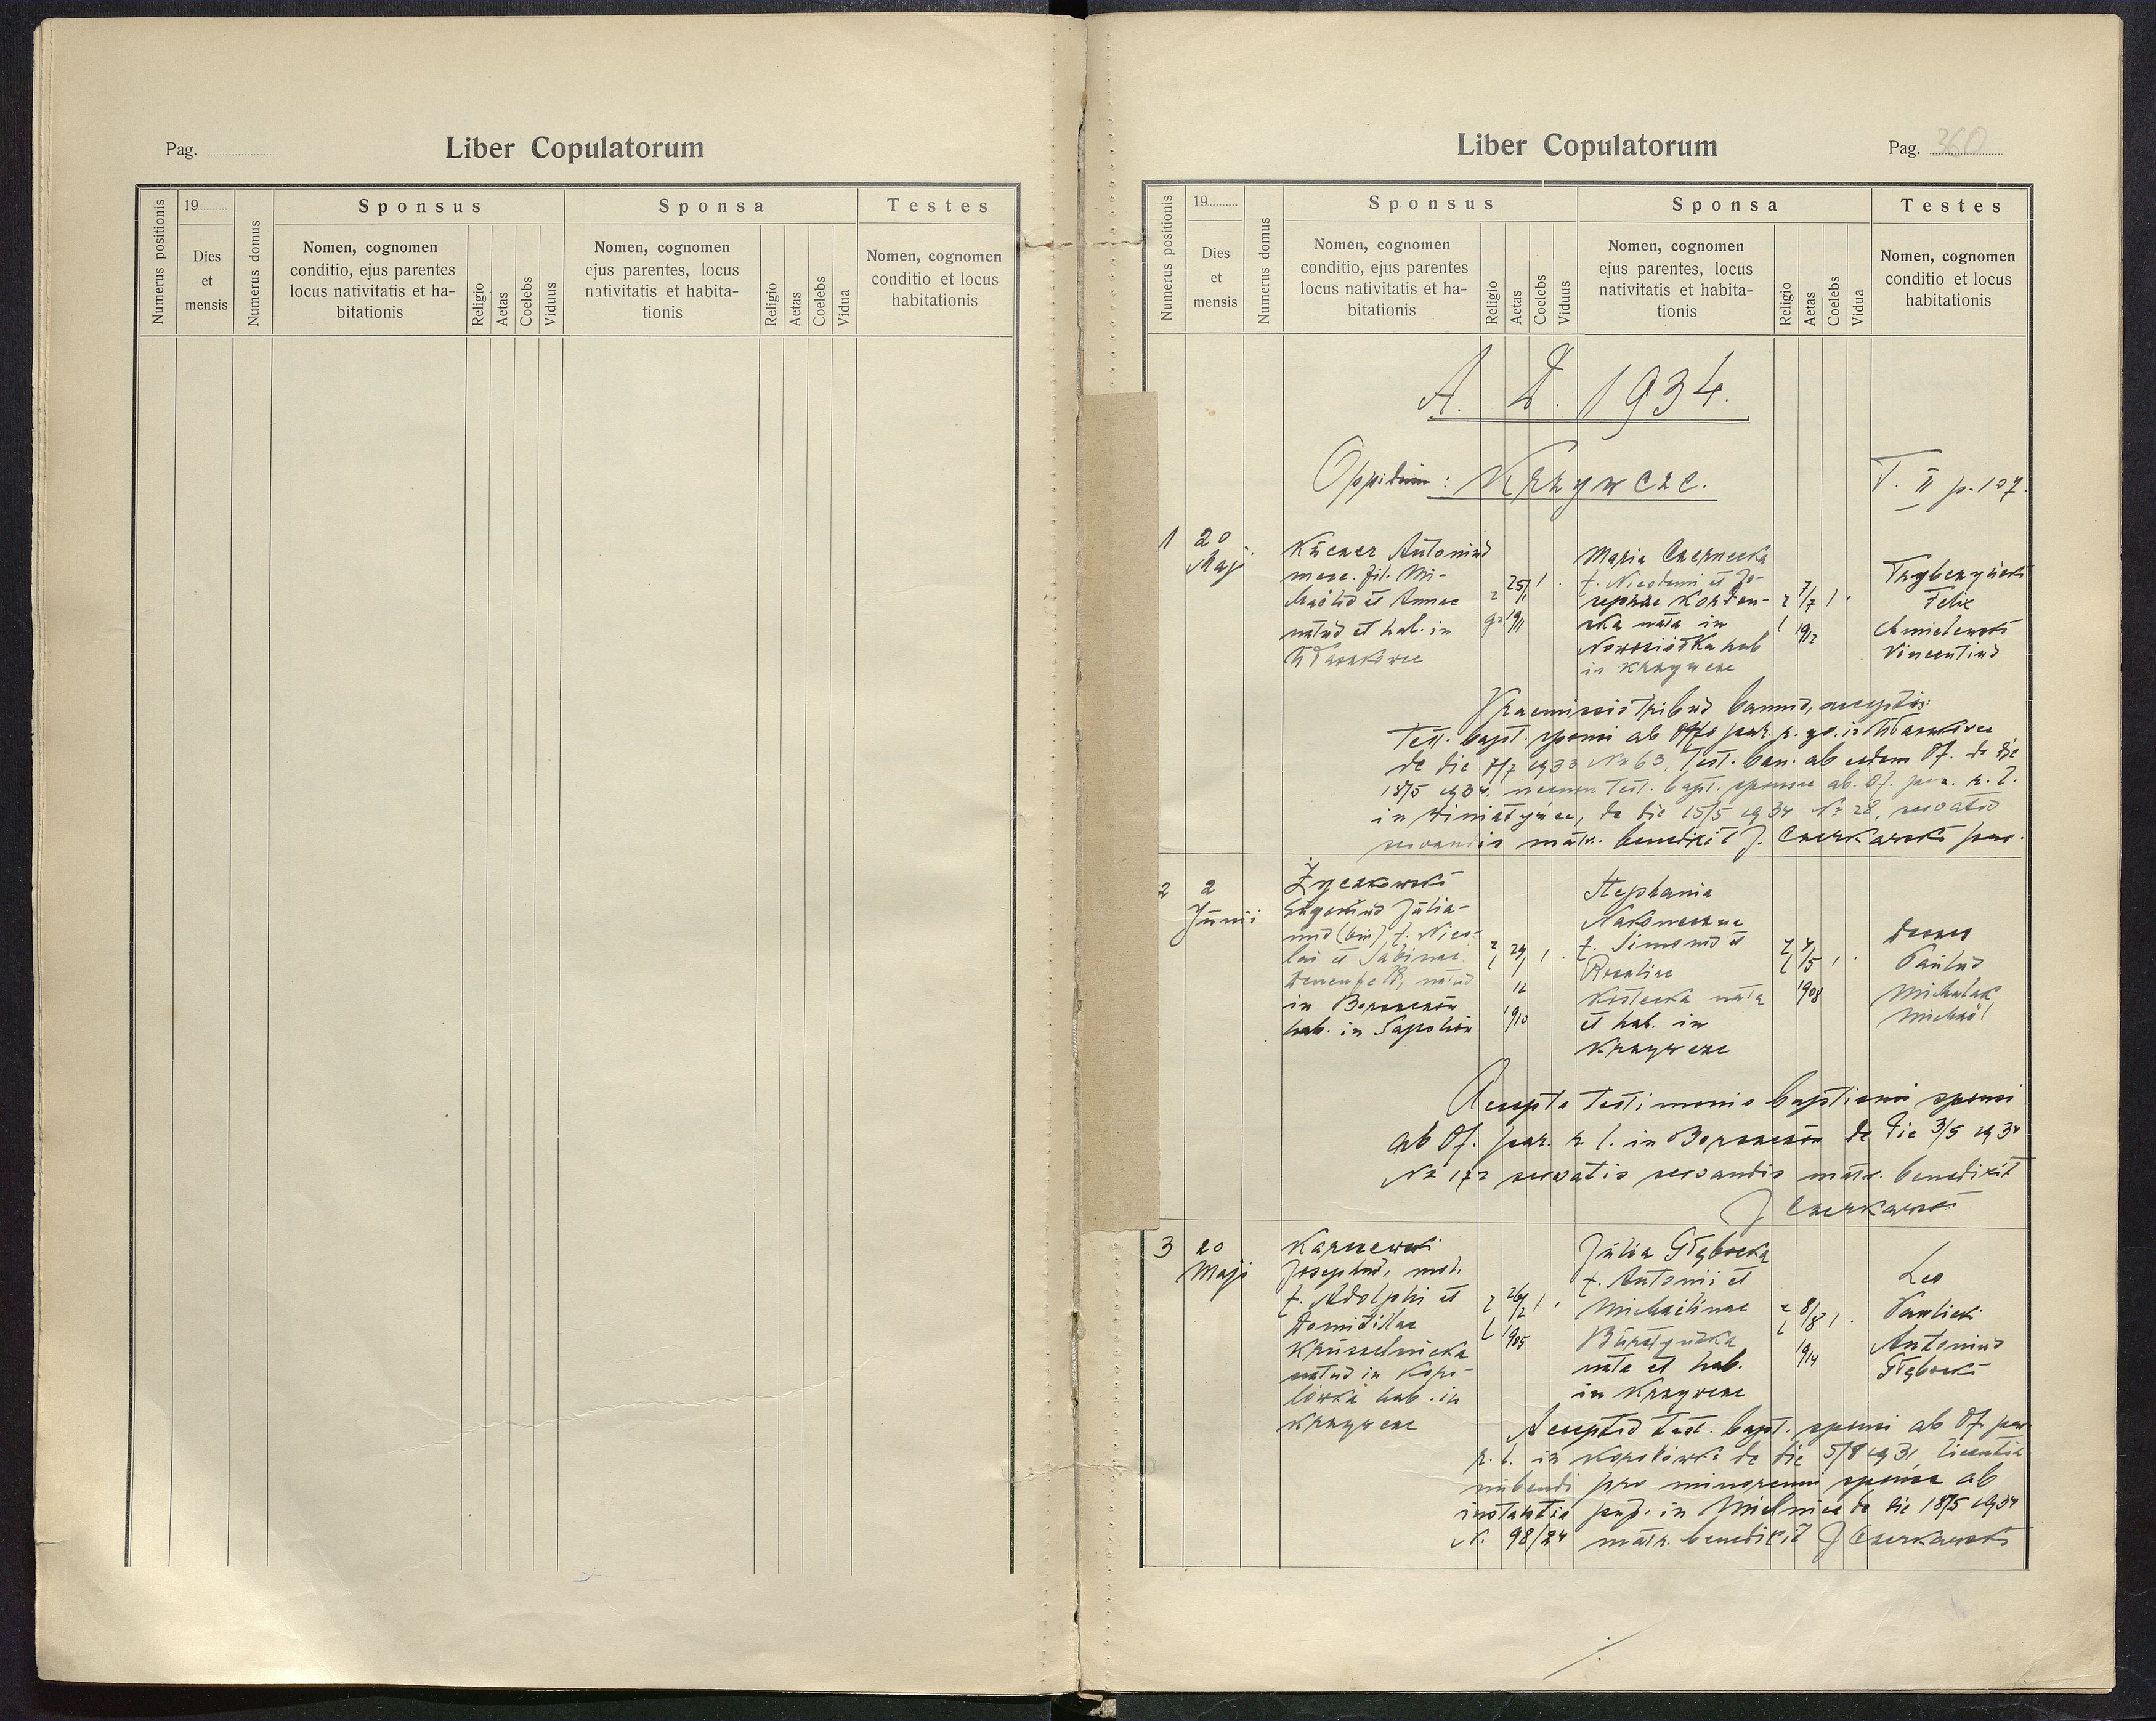 Pag.
Liber Copulatorum
Numerus positionis
19
Dies
et
mensis
Numerus domus
Sponsus
Nomen, cognomen
conditio, ejus parentes
locus nativitatis et ha-
bitationis
Religio
Aetas
Coelebs
Viduus
Sponsa
Nomen, cognomen
ejus parentes, locus
nativitatis et habita-
tionis
Religio
Aetas
Coelebs
Vidua
Testes
Nomen, cognomen
conditio et locus
habitationis
Liber Copulatorum
Pag. 360
Numerus positionis
19
Dies
et
mensis
Numerus domus
Sponsus
Nomen, cognomen
conditio, ejus parentes
locus nativitatis et ha-
bitationis
Religio
Aetas
Coelebs
Viduus
Sponsa
Nomen, cognomen
ejus parentes, locus
nativitatis et habita-
tionis
Religio
Aetas
Coelebs
Vidua
Testes
Nomen, cognomen
conditio et locus
habitationis
A. D. 1934.
Oppidum: Krzywcze.
T. II p. 107.
1
20
Maji
Antonius
fil. Mi-
et Annae
natus et hab. in
25/
1911
1
Maria Czernecka
f. Nicodemi et Jo-
sephae
nata in
Nowosiółka hab
in Krzywcze
7/7
1912
1
Felix
Chmielewski
Vincentius
Praemissis tribus bannis, acceptis
Test. bapt. sponsi ab par. r. gr. in
de die 7/7 1933 No 63, Test. ban. ab eodem Of. de die
18/5 1934. necnon Test. bapt. sponsae ab Of. par. r. l.
in de die 15/5 1934 No 28, servatis
servandis matr. benedixit J. Czerkawski par.
2
2
Junii
Życzkowski
Eugenius Julia-
nus (bin) f. Nico-
lai et Sabinae
natus
in Borszczów
hab. in Sapohów
r
l
29/
12
1910
1
Stephania
f. Simonis et
Rosaliae
Kostecka nata
et hab. in
Krzywcze
r
l
4/5
1908
1
Paulus
Michalak
Michaël
Accepta testimonio baptismi sponsi
ab Of. par. r. l. in Borszczów de die 3/5 1934
No 172 servatis servandis matr. benedixit
J Czerkawski
3
20
Maji
Karszewski
Josephus,
f. Adolphi et
Domitillae
Kruszelnicka
natus in Koro-
lówka hab. in
Krzywcze
r
l
26/2
1905
1
Julia Głębocka
f. Antonii et
Michaelinae
nata et hab.
in Krzywcze
r
l
8/8
1914
1
Leo
Pawlicki
Antonius
Głębocki
Acceptis test. bapt. sponsi ab Of. par
r. l. in Korolówka de die 5/8 1931, licentia
nubendi pro minorenni sponsa ab
instantia jud. in Mielnica de die 18/5 1934
N. 98/24 matr. benedixit J Czerkawski